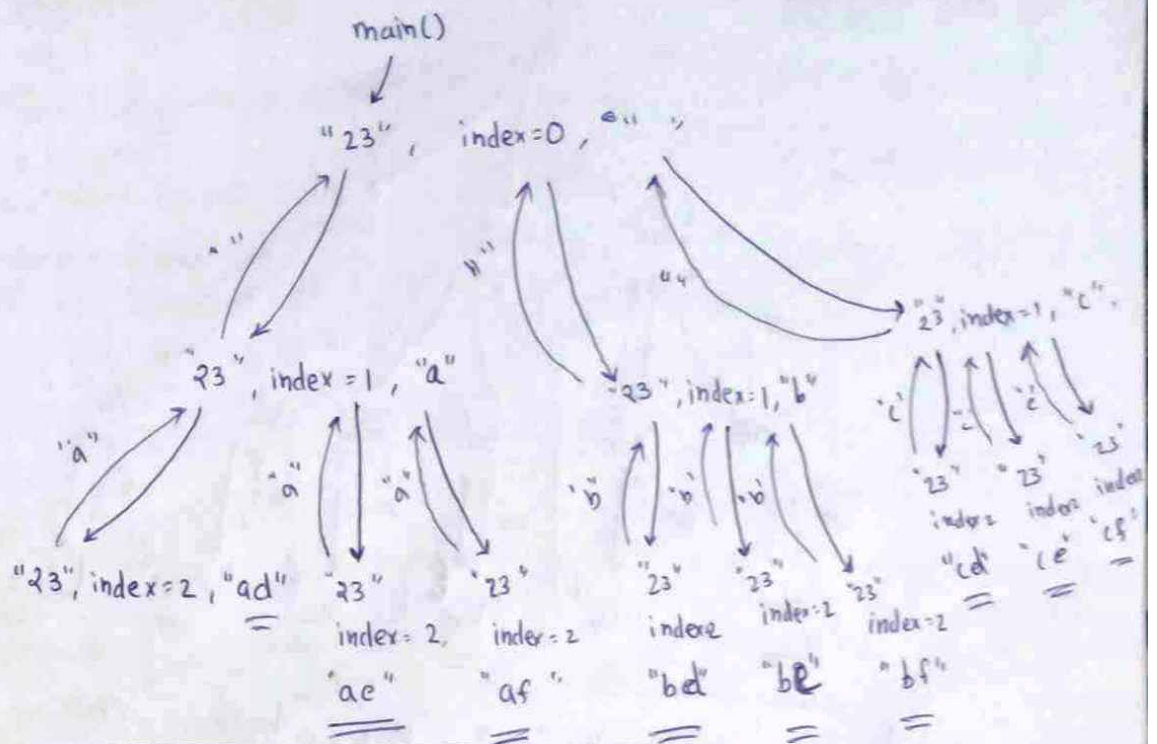 main()
"23", index=0, " "
" "
" "
" "
"23", index=1, "c",
"23", index=1, "a"
"23", index=1, "b"
"a"
"a"
"a"
"b"
"b"
"b"
"c"
"c"
"c"
"23", index=2, "ad"
"23"
index=2,
"ae"
"23"
index=2
"af"
"23"
index=2
"bd"
"23"
index=2
"be"
"23"
index=2
"bf"
"23"
index=2
"cd"
"23"
index=2
"ce"
"23"
index
"cf"